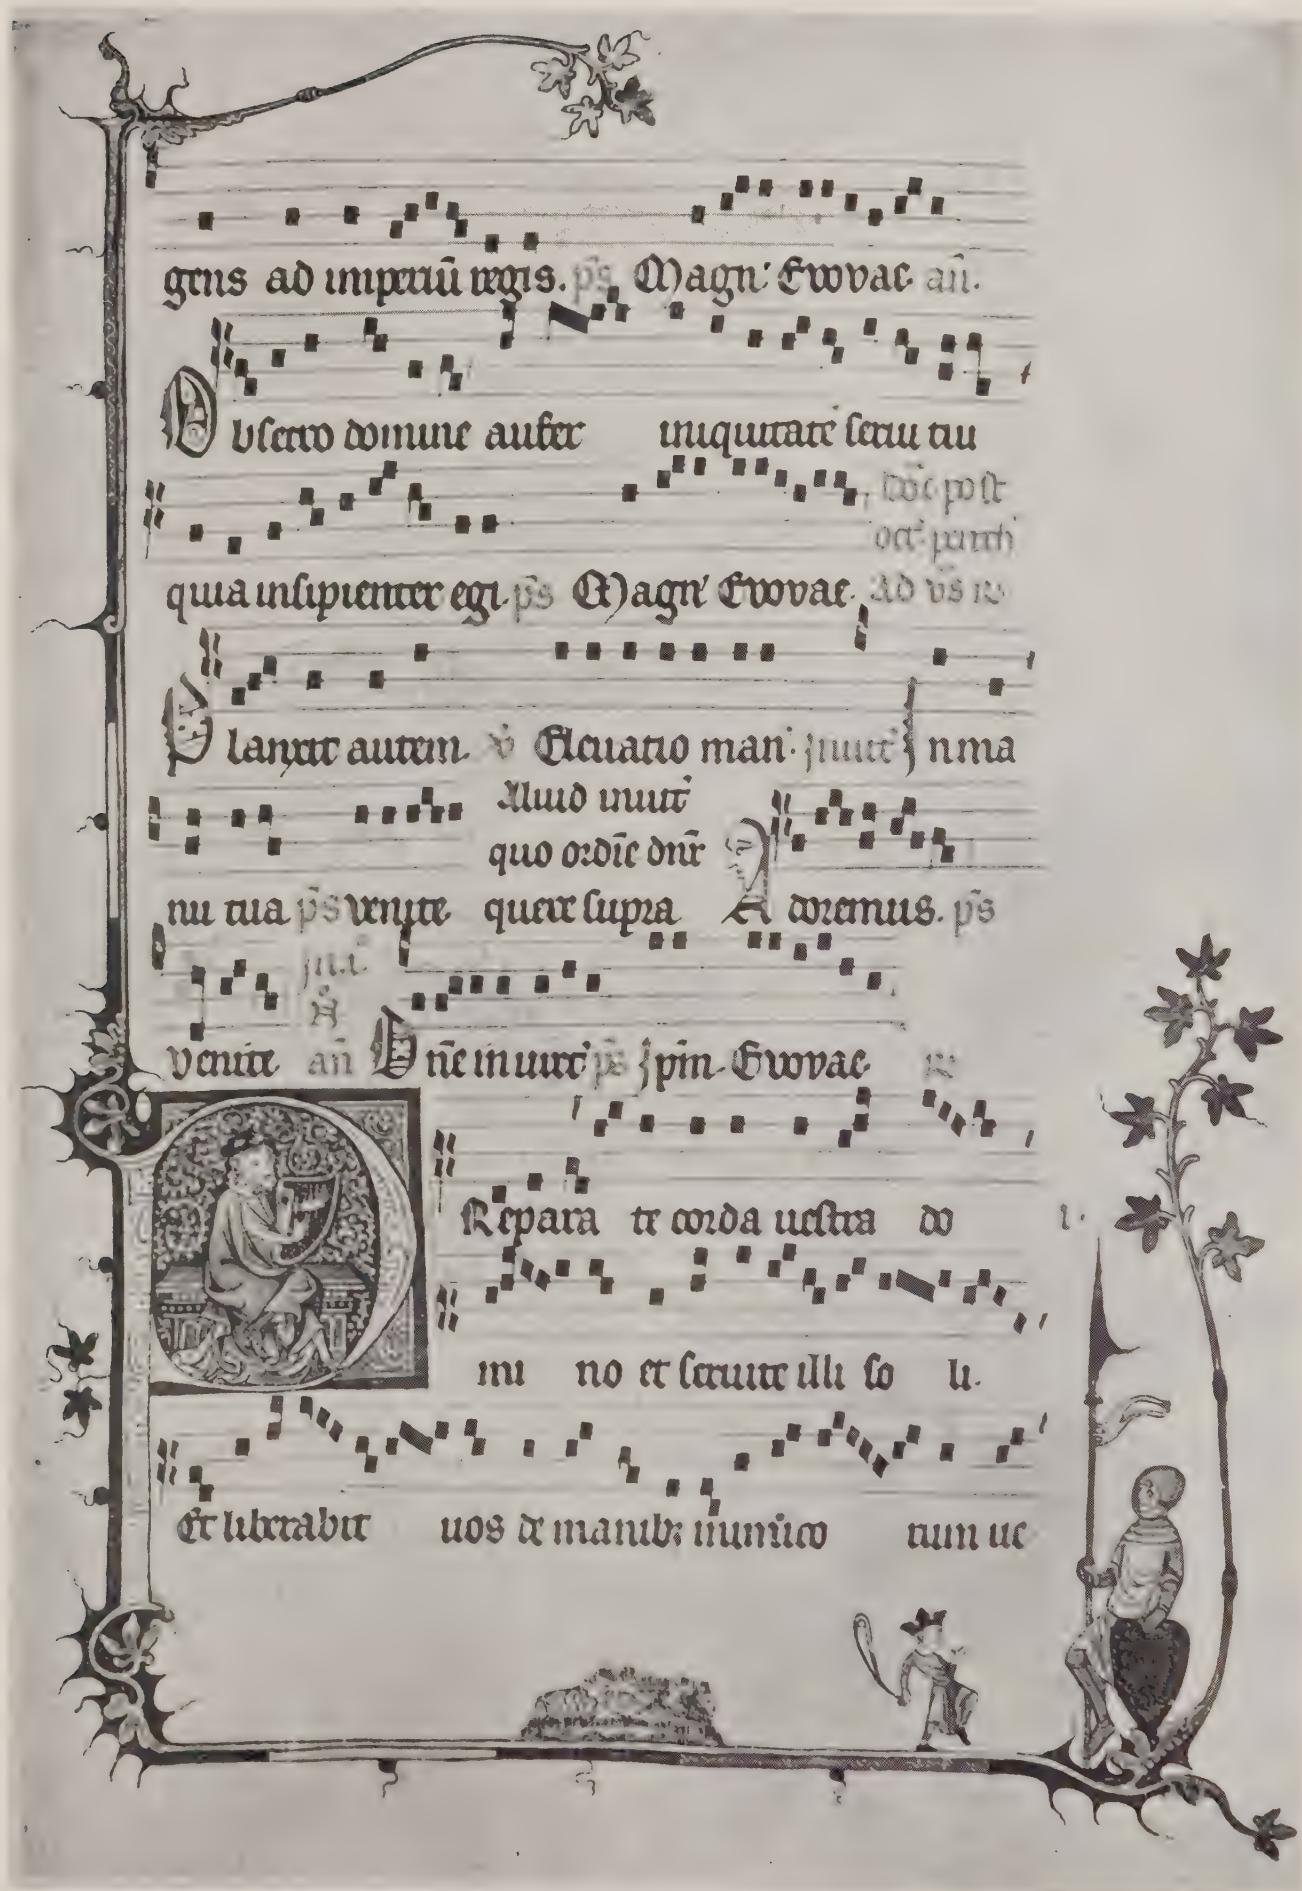 gens ad imperiū regis. p̄s Magn̛ Evovae. an̄.
Obsecro domine aufer iniquitatē serui tui
quia insipienter egi. p̄s Magn̛ Evovae.
Dōc̄ post
oct̛ penth̛
Ad v̄s
Planxit autem. v̛ Eleuatio man̛. Inuit̛ In ma
nu tua p̄s venite. Aliud inuit̛
quo ordīe dn̄r
quere supra Adoremus. p̄s
venite an̄ Dn̄e in uirt̛ p̄s Ip̄m. Evovae
Prepara te corda uestra do
mi no et seruite illi so li.
Et liberabit uos de manib; inimico rum ue